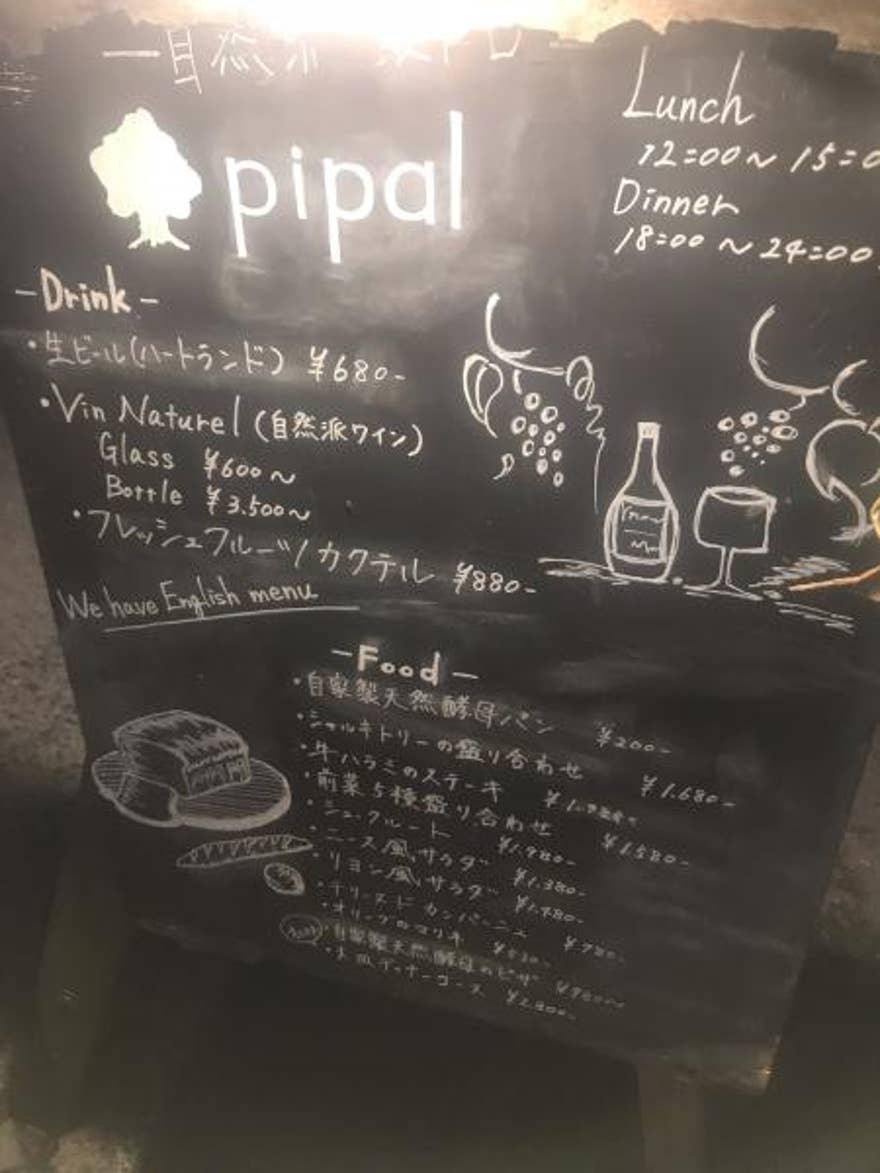 自然派
pipal
Lunch
12:00～15:0
Dinner
18:00～24:00
-Drink-
・生ビール(ハートランド) ¥680-
・Vin Naturel (自然派ワイン)
Glass ¥600～
Bottle ¥3.500～
・フレッシュフルーツカクテル ¥880-
We have English menu
-Food-
・自家製天然酵母パン ¥200-
・シャルキトリーの盛り合わせ ¥1.680-
・牛ハラミのステーキ
・前菜5種盛り合わせ ¥1580-
・シュークルート ¥1.980-
・ニース風サラダ ¥1.380-
・リヨン風サラダ ¥1.480-
カンパーニュ ¥780-
・オリーブのマリネ
・自家製天然酵母のピザ
ディナーコース